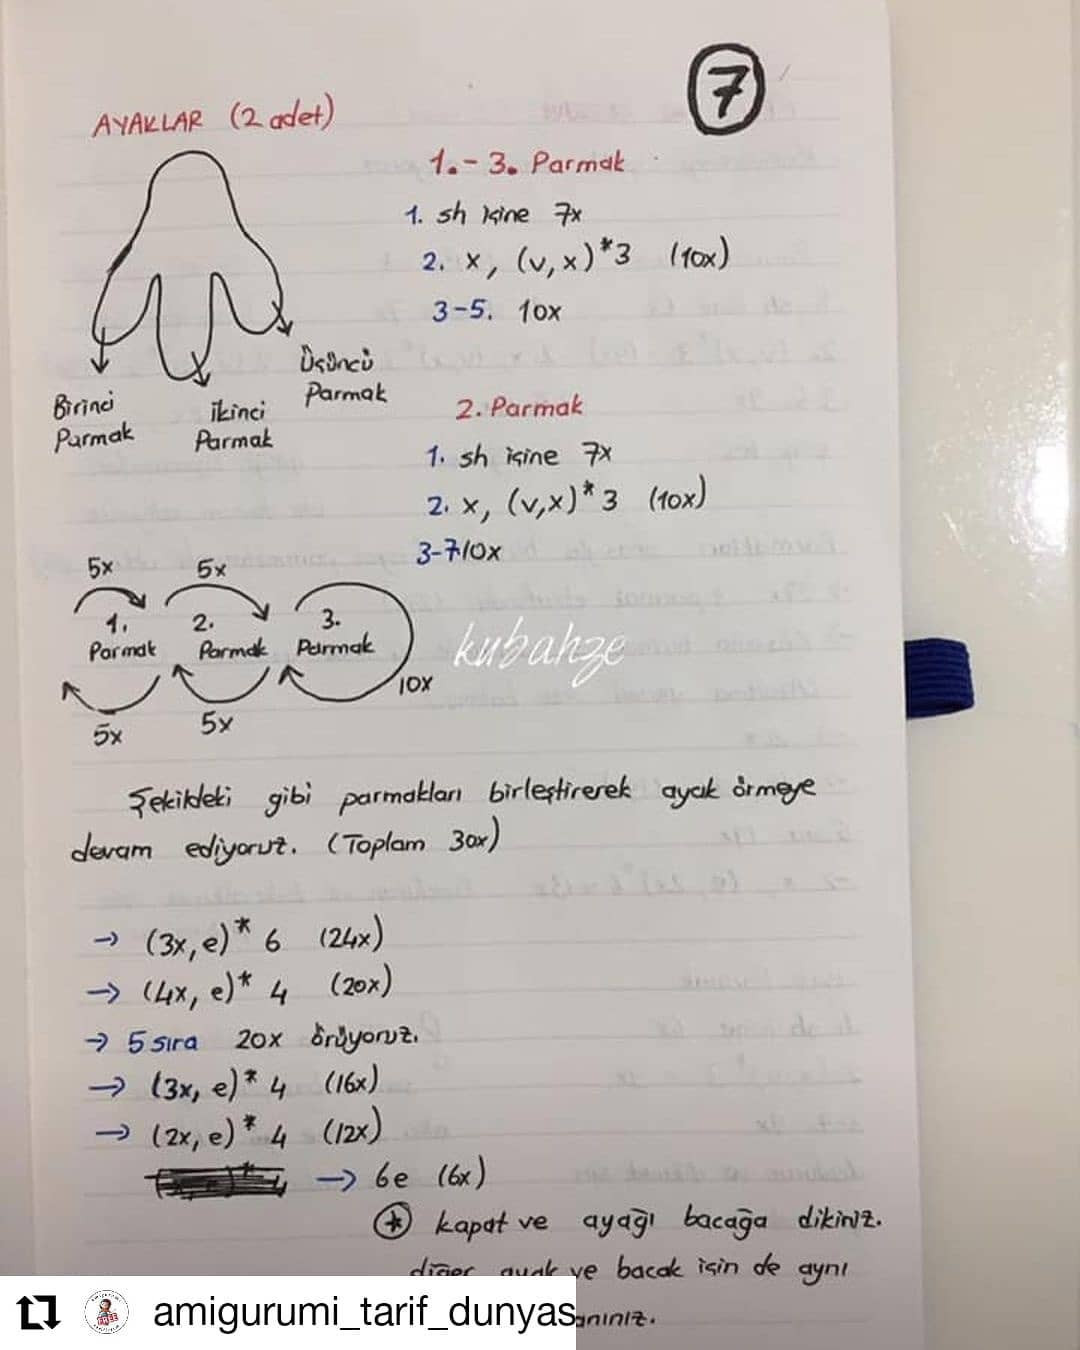 7
AYAKLAR (2 adet)
1.-3. Parmak
1. sh içine 7x
2. x, (v,x)*3 (10x)
3-5. 10x
Birinci
Parmak
İkinci
Parmak
Üçüncü
Parmak
2. Parmak
1. sh içine 7x
2. x, (v,x)*3 (10x)
3-7 10x
5x 5x
1. Parmak
2. Parmak
3. Parmak
10x
5x 5x
kubahze
Şekildeki gibi parmakları birleştirerek ayak örmeye
devam ediyoruz. (Toplam 30x)
→ (3x, e)* 6 (24x)
→ (4x, e)* 4 (20x)
→ 5 sıra 20x örüyoruz.
→ (3x, e)* 4 (16x)
→ (2x, e)* 4 (12x)
→ 6e (6x)
* kapat ve ayağı bacağa dikiniz.
diğer ayak ve bacak için de aynı
amigurumi_tarif_dunyas
FREE